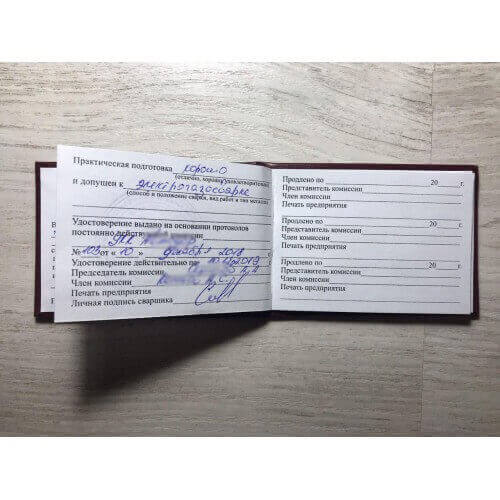 Практическая подготовка хорошо
(отлично, хорошо, удовлетворительно)
и допущен к электрогазосварке
(способ и положение сварки, вид работ и тип металла)
Удостоверение выдано на основании протоколов
постоянно действ комиссии
№ 103 от « 10 » декабря 2018
Удостоверение действительно по 10.12.2019 г.
Председатель комиссии
Член комиссии
Печать предприятия
Личная подпись сварщика
Продлено по 20 г.
Представитель комиссии
Член комиссии
Печать предприятия
Продлено по 20 г.
Представитель комиссии
Член комиссии
Печать предприятия
Продлено по 20 г.
Представитель комиссии
Член комиссии
Печать предприятия